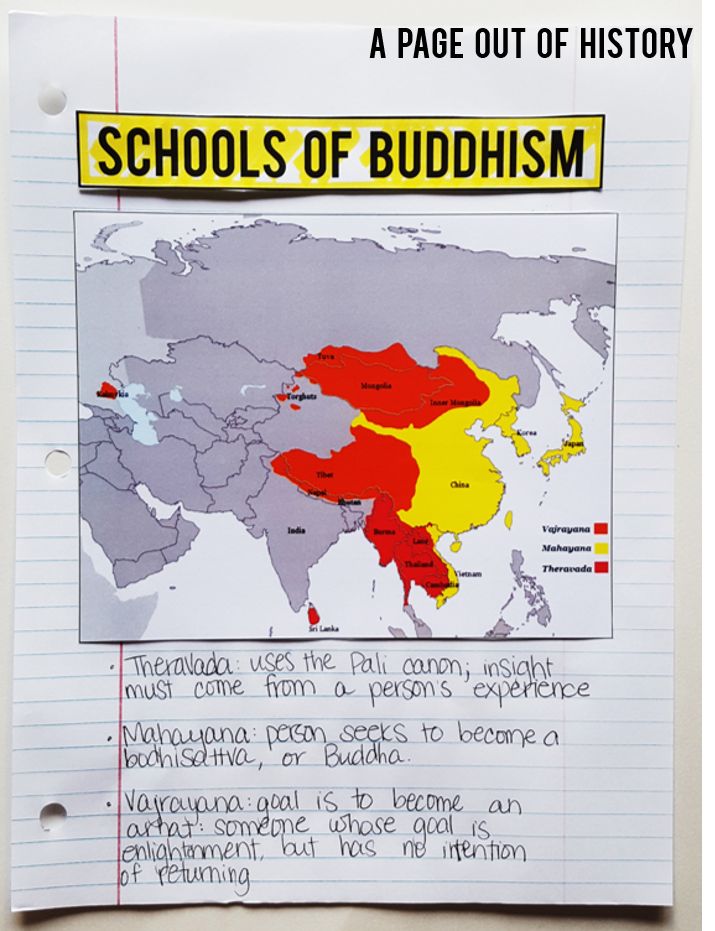 A PAGE OUT OF HISTORY
SCHOOLS OF BUDDHISM
Tuva
Mongolia
Kalmykia
Torghuts
Inner Mongolia
Korea
Japan
Tibet
China
Nepal
Bhutan
India
Burma
Laos
Thailand
Vietnam
Cambodia
Sri Lanka
Vajrayana
Mahayana
Theravada
· Theravada: uses the Pali canon; insight
must come from a person's experience
· Mahayana: person seeks to become a
bodhisattva, or Buddha.
· Vajrayana: goal is to become an
arhat: someone whose goal is
enlightenment, but has no intention
of returning